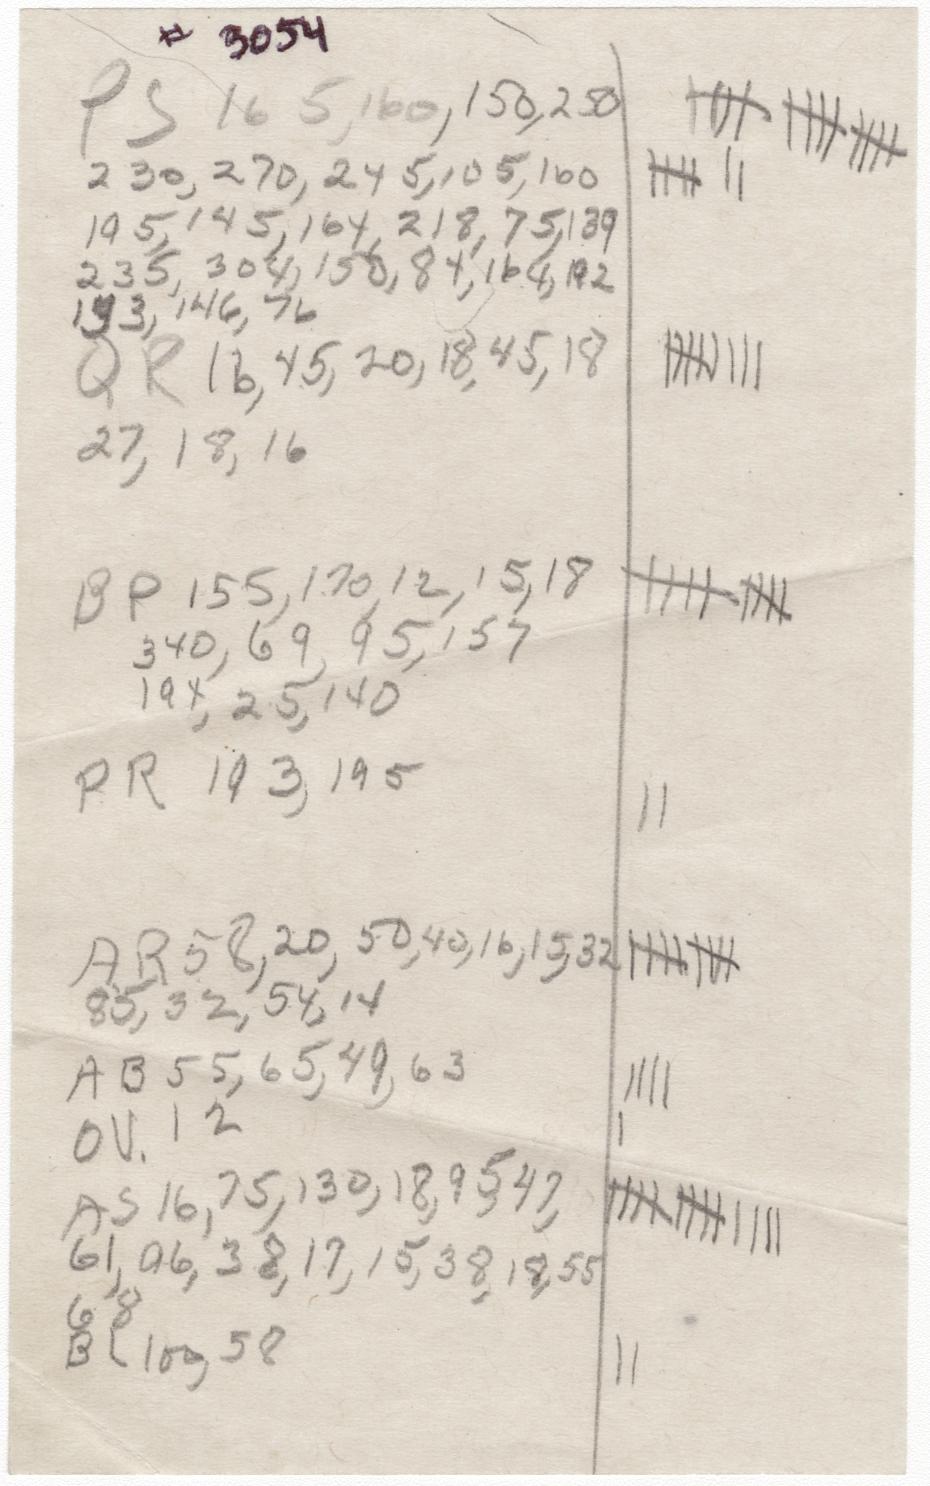 # 3054
PS 165, 160, 150, 250
230, 270, 245, 105, 160
195, 145, 164, 218, 75, 139
235, 304, 150, 84, 164, 192
193, 146, 76
QR 16, 45, 20, 18, 45, 18
27, 18, 16
BP 155, 170, 12, 15, 18
340, 69, 95, 157
194, 25, 140
PR 193, 195
AR 58, 20, 50, 40, 16, 15, 32
85, 32, 54, 14
AB 55, 65, 49, 63
OV. 12
AS 16, 75, 130, 18, 95, 47,
61, 96, 38, 17, 15, 38, 18, 55
68
BL 100, 58